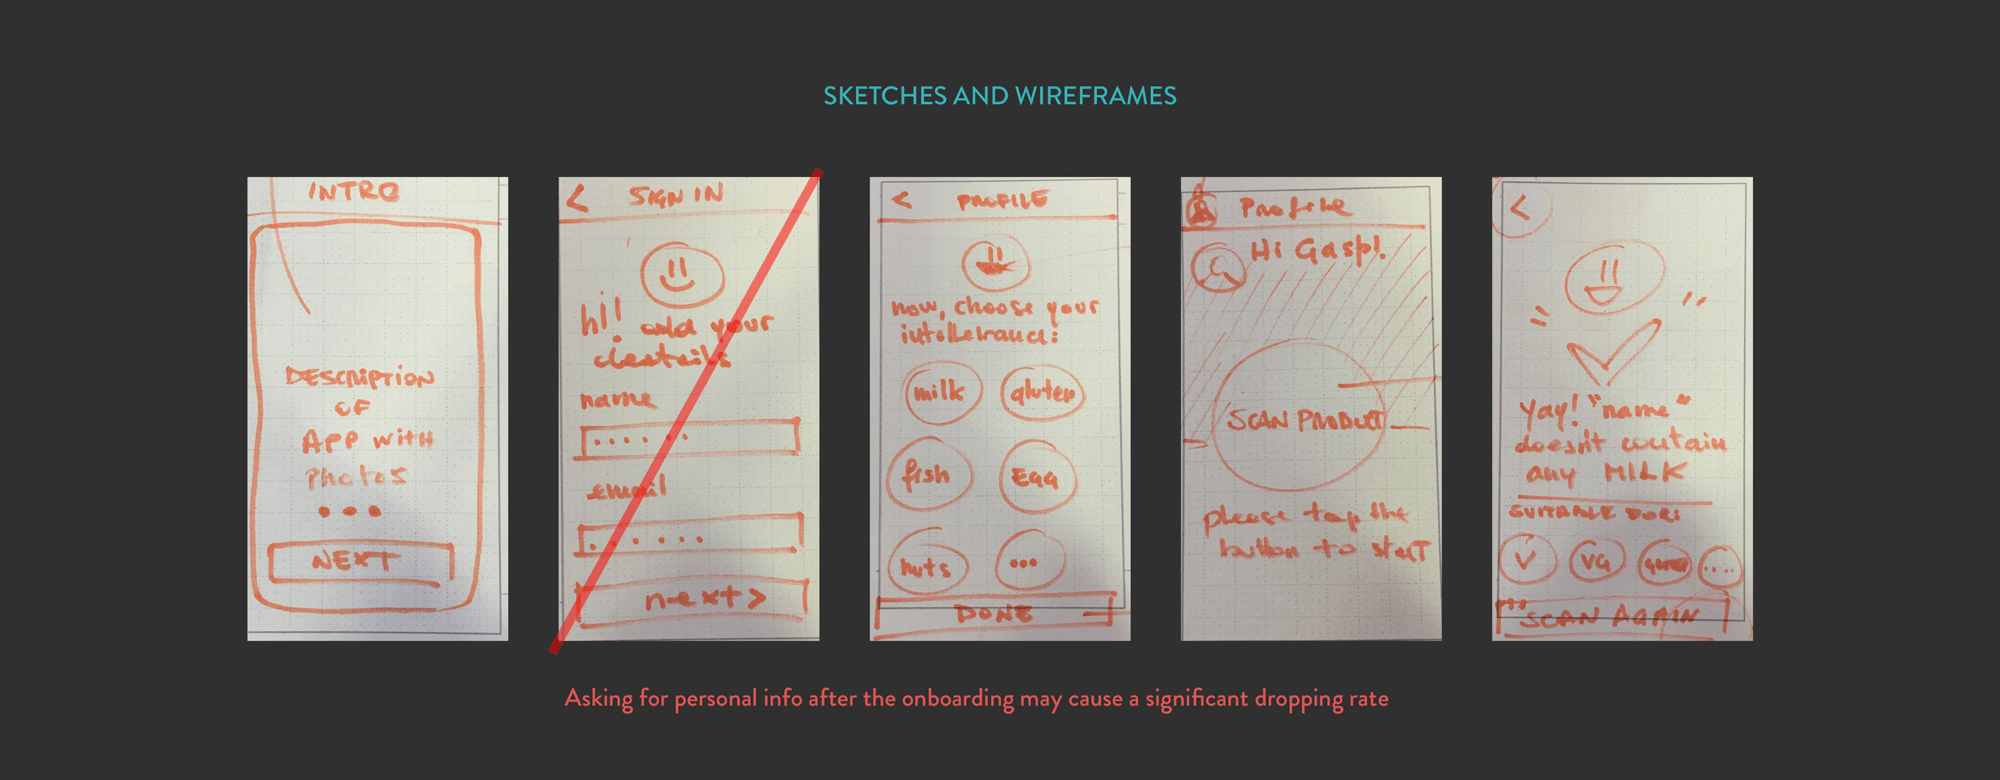 SKETCHES AND WIREFRAMES
INTRO
DESCRIPTION
OF
APP WITH
PHOTOS
...
NEXT
< SIGN IN
hi! add your
deatails
name
email
next >
< PROFILE
now, choose your
intollerance:
milk gluten
fish EGG
nuts ...
DONE
Profile
Hi Gasp!
SCAN PRODUCT
please tap the
button to start
<
yay! "name"
doesn't contain
any MILK
SUITABLE FOR:
V VG ....
SCAN AGAIN
Asking for personal info after the onboarding may cause a significant dropping rate